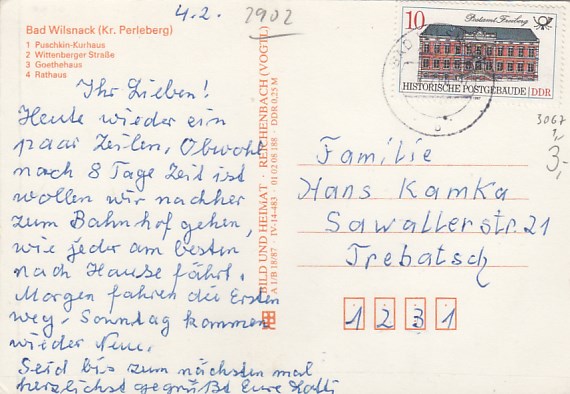 4.2. 2902
Bad Wilsnack (Kr. Perleberg)
1 Puschkin-Kurhaus
2 Wittenberger Straße
3 Goethehaus
4 Rathaus
Ihr Lieben!
Heute wieder ein
paar Zeilen, Obwohl
nach 8 Tage Zeit ist
wollen wir nachher
zum Bahnhof gehen,
wie jeder am besten
nach Hause fährt.
Morgen fahren die Ersten
weg. Sonntag kommen
wieder Neue.
Seid bis zum nächsten mal
herzlichst gegrüßt Eure
BILD UND HEIMAT · REICHENBACH (VOGTL)
A 1/B 18/87 · IV-14-483 · 01 02 08 188 · DDR 0,25 M
10
Postamt Freiberg
HISTORISCHE POSTGEBÄUDE DDR
BAD
3067
3,-
Familie
Hans Kamka
Sawallerstr. 21
Trebatsch
1 2 3 1